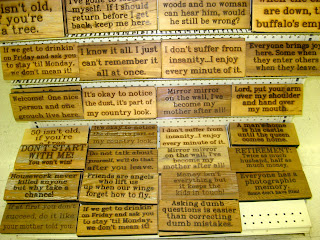 isn't old,
you're
a tree.
I've gone
myself. If I should
return before I get
back, keep me here.
woods and no woman
can hear him, would
he still be wrong?
are down, the
buffalo's emp
If we get to drinkin
on Friday and ask you
to stay 'til Monday,
we don't mean it!
I know it all. I just
can't remember it
all at once.
I don't suffer from
insanity...I enjoy
every minute of it.
Everyone brings joy
here. Some when
they enter others
when they leave.
Welcome! One nice
person and one
grouch live here.
It's okay to notice
the dust, it's part of
my country look.
Mirror mirror
on the wall, I've
become my
mother after all!
Lord, put your arm
over my shoulder
and hand over
my mouth...
50 isn't old,
if you're
a tree.
DON'T START
WITH ME!
You won't win!
I don't suffer from
insanity. I enjoy
every minute of it.
Mirror mirror
on the wall, I've
become my
A man's house is
his castle
until the queen
comes home.
RETIREMENT:
Twice as much
husband, half as
much money.
Housework never
killed anyone
but why take a
chance!
Friends are angels
who lift us
up when our wings
forget how to fly.
Everyone has a
photographic
memory.
If at first you don't
succeed, do it like
your mother told you.
If we get to drinkin
on Friday and ask you
to stay 'til Monday,
we don't mean it!
Asking dumb
questions is easier
than correcting
dumb mistakes.